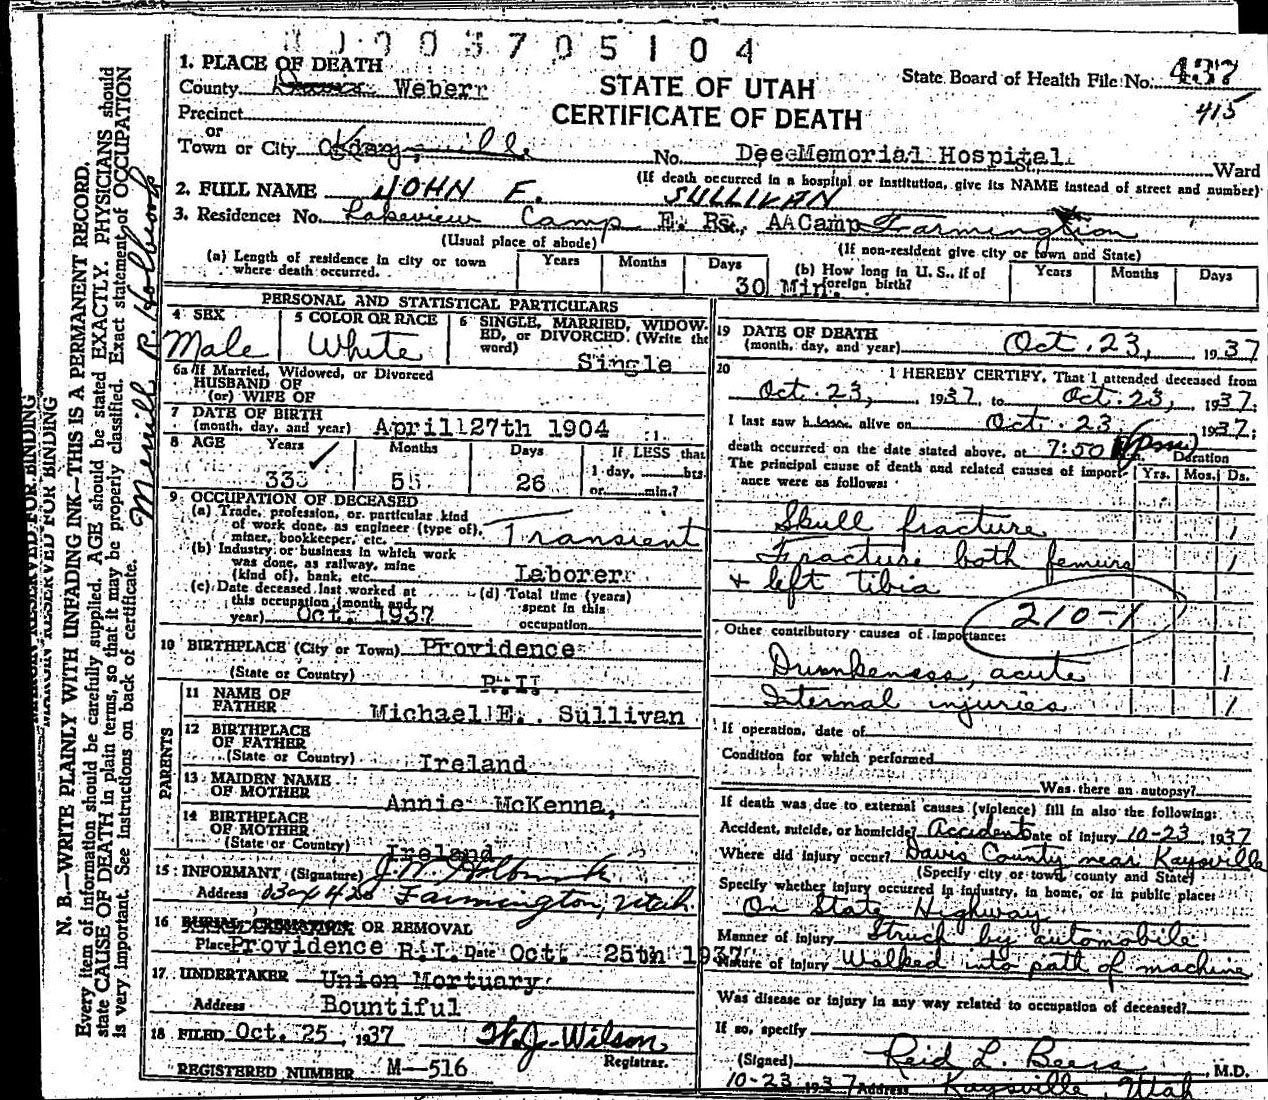 0 0 3 7 0 5 1 0 4
1. PLACE OF DEATH
County Davis Weber
STATE OF UTAH
CERTIFICATE OF DEATH
State Board of Health File No. 437
415
Precinct
or
Town or City Kaysville No. Dee Memorial Hospital St., Ward
(If death occurred in a hospital or institution, give its NAME instead of street and number)
2. FULL NAME JOHN F. SULLIVAN
3. Residence: No. Lakeview Camp E. R. AA Camp Farmington
(Usual place of abode) (If non-resident give city or town and State)
(a) Length of residence in city or town where death occurred. Years Months Days 30 Min.
(b) How long in U. S., if of foreign birth? Years Months Days
PERSONAL AND STATISTICAL PARTICULARS
4 SEX Male
5 COLOR OR RACE White
6 SINGLE, MARRIED, WIDOWED, OR DIVORCED. (Write the word) Single
6a If Married, Widowed, or Divorced
HUSBAND OF
(or) WIFE OF
7 DATE OF BIRTH
(month, day, and year) April 27th 1904
8 AGE Years 33 Months 5 Days 26 If LESS than 1 day, hrs. or min.?
9 OCCUPATION OF DECEASED
(a) Trade, profession, or particular kind of work done, as engineer (type of), miner, bookkeeper, etc. Transient
(b) Industry or business in which work was done, as railway, mine (kind of), bank, etc. Laborer
(c) Date deceased last worked at this occupation (month and year) Oct. 1937
(d) Total time (years) spent in this occupation
10 BIRTHPLACE (City or Town) Providence
(State or Country) R.I.
PARENTS
11 NAME OF FATHER Michael E. Sullivan
12 BIRTHPLACE OF FATHER
(State or Country) Ireland
13 MAIDEN NAME OF MOTHER Annie McKenna,
14 BIRTHPLACE OF MOTHER
(State or Country) Ireland
15 INFORMANT (Signature)
Address Farmington, Utah
16 BURIAL, CREMATION OR REMOVAL
Place Providence R.I. Date Oct. 25th 1937
17 UNDERTAKER Union Mortuary
Address Bountiful
18 FILED Oct. 25, 1937 W. J. Wilson
Registrar.
REGISTERED NUMBER M-516
19 DATE OF DEATH
(month, day, and year) Oct. 23, 1937
20 I HEREBY CERTIFY, That I attended deceased from
Oct. 23, 1937, to Oct. 23, 1937;
I last saw him alive on Oct. 23 1937;
death occurred on the date stated above, at 7:50 (pm) m. Duration
The principal cause of death and related causes of importance were as follows: Yrs. Mos. Ds.
Skull fracture 1
Fracture both femurs 1
+ left tibia
210-1
Other contributory causes of importance:
Drunkeness, acute 1
Internal injuries 1
If operation, date of
Condition for which performed
Was there an autopsy?
If death was due to external causes (violence) fill in also the following:
Accident, suicide, or homicide? Accident Date of injury 10-23 1937
Where did injury occur? Davis County near Kaysville
(Specify city or town, county and State)
Specify whether injury occurred in industry, in home, or in public place:
On State Highway
Manner of injury Struck by automobile
Nature of injury Walked into path of machine
Was disease or injury in any way related to occupation of deceased?
If so, specify
(Signed) Reid L. Beers, M.D.
10-23 1937 Address Kaysville, Utah
MARGIN RESERVED FOR BINDING
MARGIN RESERVED FOR BINDING
N. B.—WRITE PLAINLY WITH UNFADING INK—THIS IS A PERMANENT RECORD.
Every item of information should be carefully supplied. AGE should be stated EXACTLY. PHYSICIANS should
state CAUSE OF DEATH in plain terms, so that it may be properly classified. Exact statement of OCCUPATION
is very important. See instructions on back of certificate.
Merrill R. Holbrook